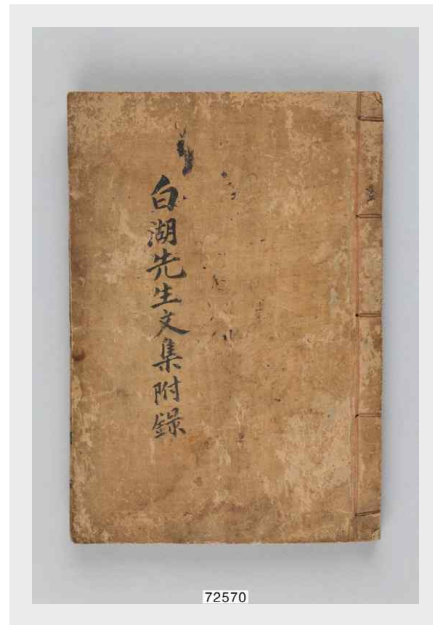 白湖先生文集附錄
72570